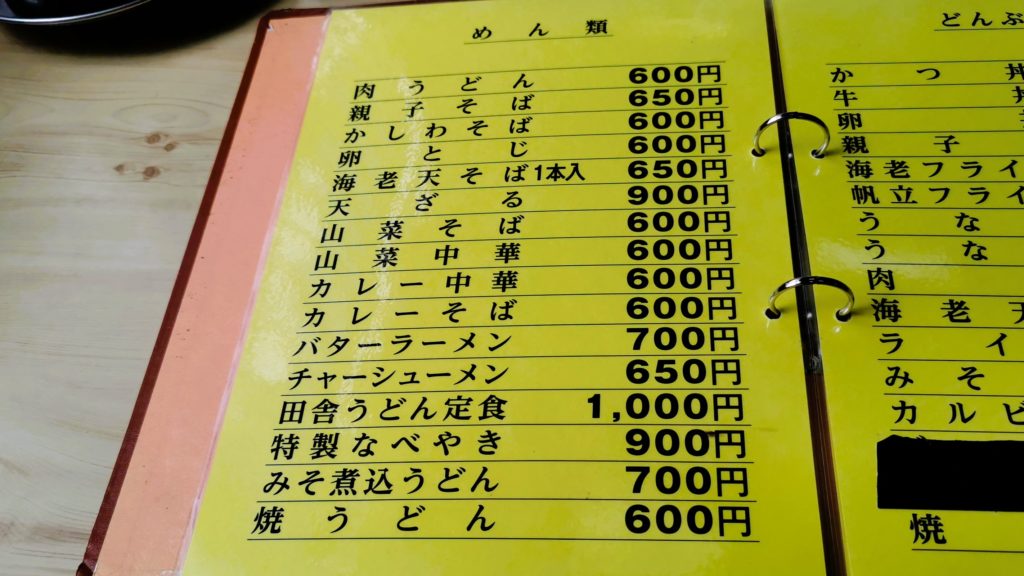 めん類
肉うどん 600円
親子そば 650円
かしわそば 600円
卵とじ 600円
海老天そば1本入 650円
天ざる 900円
山菜そば 600円
山菜中華 600円
カレー中華 600円
カレーそば 600円
バターラーメン 700円
チャーシューメン 650円
田舎うどん定食 1,000円
特製なべやき 900円
みそ煮込うどん 700円
焼うどん 600円
どんぶ
かつ丼
牛丼
卵
親子
海老フライ
帆立フライ
うな
うな
肉
海老天
ライ
みそ
カルビ
焼